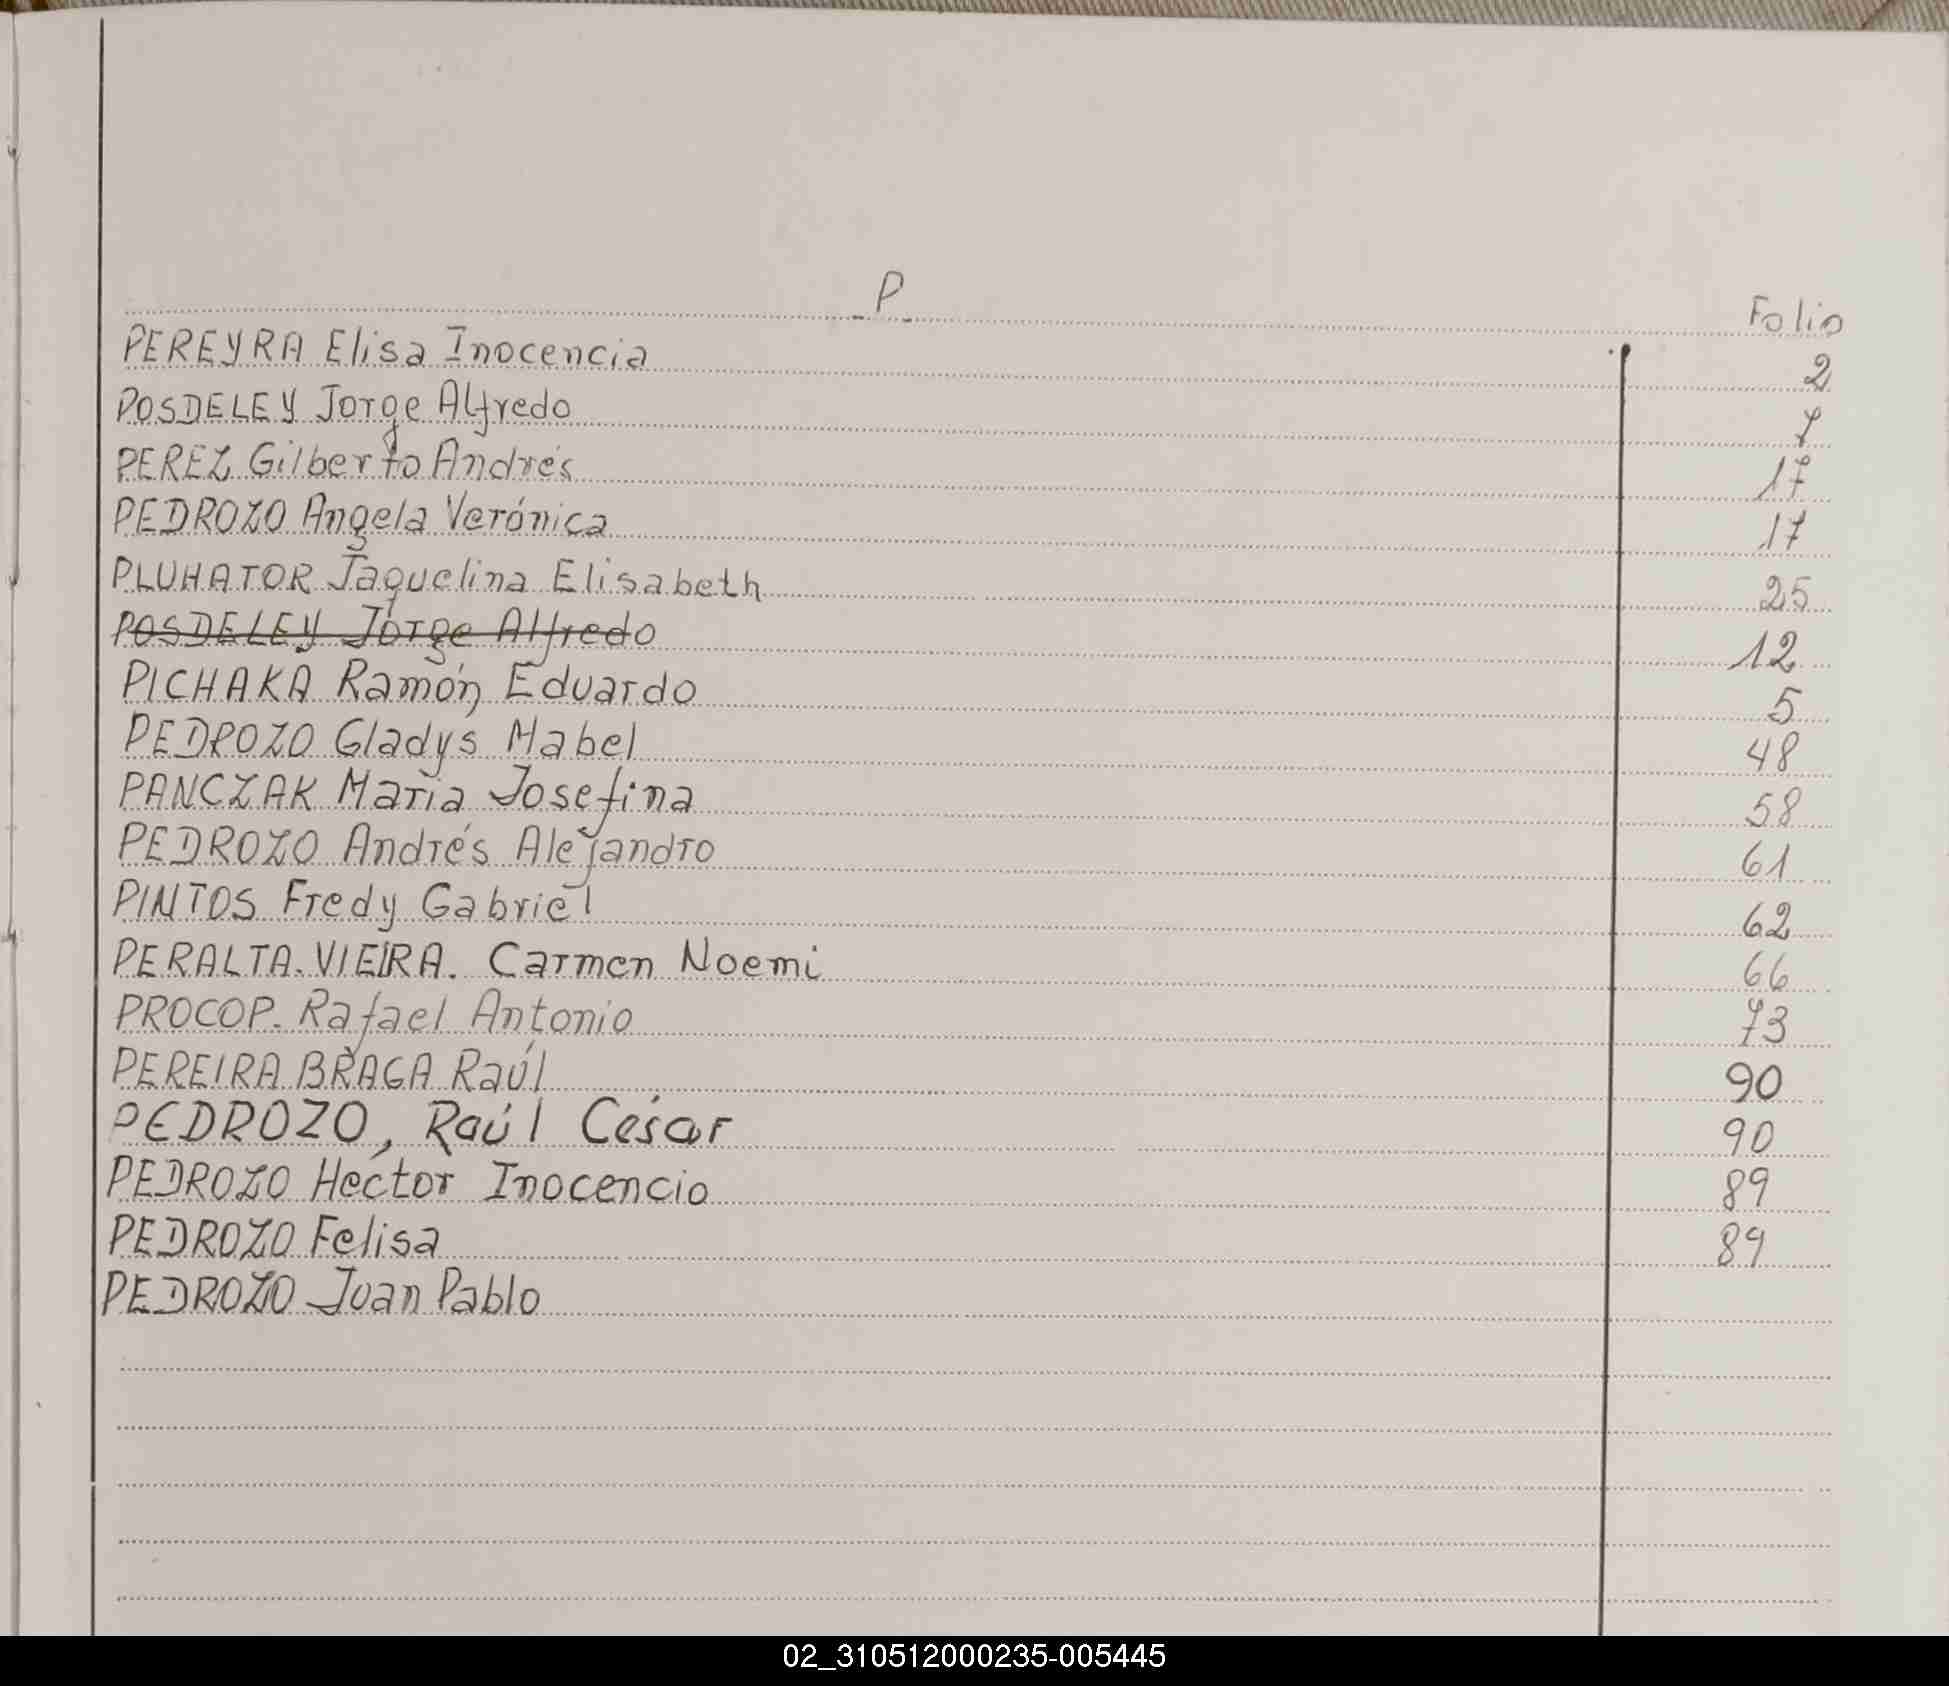 P
Folio
PEREYRA Elisa Inocencia 2
POSDELEY Jorge Alfredo 7
PEREZ Gilberto Andrés 17
PEDROZO Angela Verónica 17
PLUHATOR Jaquelina Elisabeth 25
POSDELEY Jorge Alfredo 12
PICHAKA Ramón Eduardo 5
PEDROZO Gladys Mabel 48
PANCZAK Maria Josefina 58
PEDROZO Andrés Alejandro 61
PINTOS Fredy Gabriel 62
PERALTA. VIEIRA. Carmen Noemi 66
PROCOP. Rafael Antonio 73
PEREIRA BRAGA Raúl 90
PEDROZO, Raúl César 90
PEDROZO Héctor Inocencio 89
PEDROZO Felisa 89
PEDROZO Juan Pablo
02_310512000235-005445